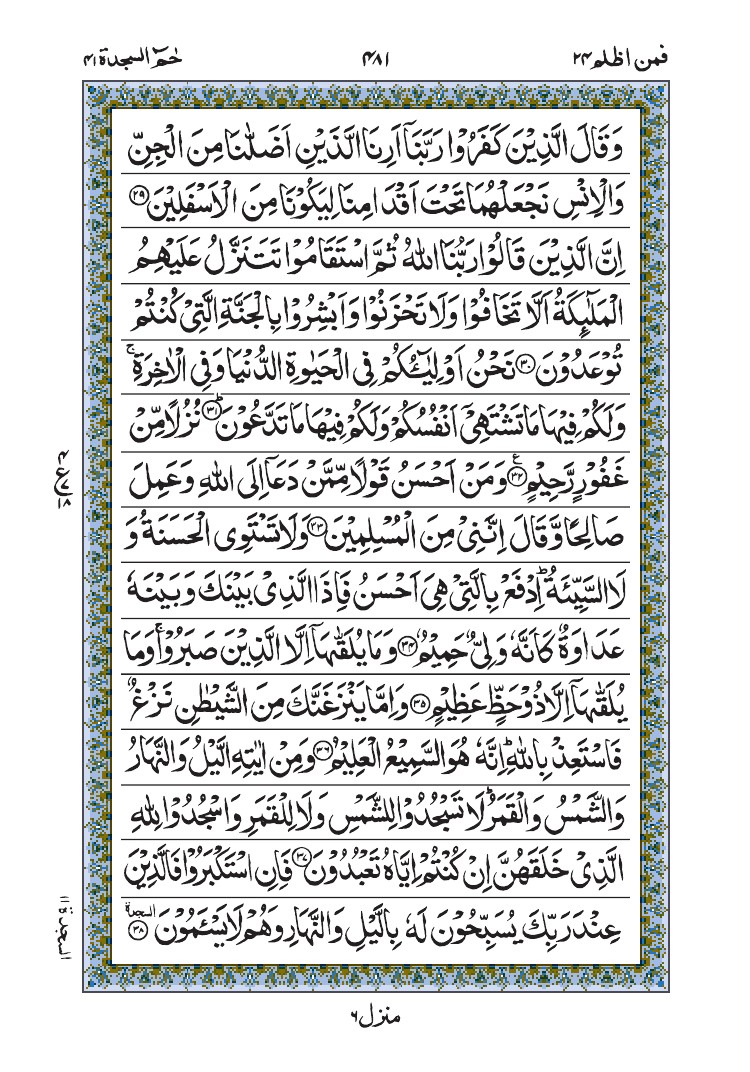 فمن اظلم ۲۴ ۴۸۱ حٰمٓ السجدة ۴۱
وَقَالَ الَّذِيْنَ كَفَرُوْا رَبَّنَاۤ اَرِنَا الَّذَيْنِ اَضَلّٰنَا مِنَ الْجِنِّ
وَالْاِنْسِ نَجْعَلْهُمَا تَحْتَ اَقْدَامِنَا لِيَكُوْنَا مِنَ الْاَسْفَلِيْنَ ﴿۲۹﴾
اِنَّ الَّذِيْنَ قَالُوْا رَبُّنَا اللّٰهُ ثُمَّ اسْتَقَامُوْا تَتَنَزَّلُ عَلَيْهِمُ
الْمَلٰٓئِكَةُ اَلَّا تَخَافُوْا وَلَا تَحْزَنُوْا وَاَبْشِرُوْا بِالْجَنَّةِ الَّتِيْ كُنْتُمْ
تُوْعَدُوْنَ ﴿۳۰﴾ نَحْنُ اَوْلِيٰٓؤُكُمْ فِى الْحَيٰوةِ الدُّنْيَا وَفِى الْاٰخِرَةِ ۚ
وَلَكُمْ فِيْهَا مَا تَشْتَهِيْٓ اَنْفُسُكُمْ وَلَكُمْ فِيْهَا مَا تَدَّعُوْنَ ؕ﴿۳۱﴾ نُزُلًا مِّنْ
غَفُوْرٍ رَّحِيْمٍ ﴿۳۲﴾ ع وَمَنْ اَحْسَنُ قَوْلًا مِّمَّنْ دَعَاۤ اِلَى اللّٰهِ وَعَمِلَ
صَالِحًا وَّقَالَ اِنَّنِيْ مِنَ الْمُسْلِمِيْنَ ﴿۳۳﴾ وَلَا تَسْتَوِى الْحَسَنَةُ وَ
لَا السَّيِّئَةُ ؕ اِدْفَعْ بِالَّتِيْ هِيَ اَحْسَنُ فَاِذَا الَّذِيْ بَيْنَكَ وَبَيْنَهٗ
عَدَاوَةٌ كَاَنَّهٗ وَلِيٌّ حَمِيْمٌ ﴿۳۴﴾ وَمَا يُلَقّٰىهَاۤ اِلَّا الَّذِيْنَ صَبَرُوْا ۚ وَمَا
يُلَقّٰىهَاۤ اِلَّا ذُوْ حَظٍّ عَظِيْمٍ ﴿۳۵﴾ وَاِمَّا يَنْزَغَنَّكَ مِنَ الشَّيْطٰنِ نَزْغٌ
فَاسْتَعِذْ بِاللّٰهِ ؕ اِنَّهٗ هُوَ السَّمِيْعُ الْعَلِيْمُ ﴿۳۶﴾ وَمِنْ اٰيٰتِهِ الَّيْلُ وَالنَّهَارُ
وَالشَّمْسُ وَالْقَمَرُ ؕ لَا تَسْجُدُوْا لِلشَّمْسِ وَلَا لِلْقَمَرِ وَاسْجُدُوْا لِلّٰهِ
الَّذِيْ خَلَقَهُنَّ اِنْ كُنْتُمْ اِيَّاهُ تَعْبُدُوْنَ ﴿۳۷﴾ فَاِنِ اسْتَكْبَرُوْا فَالَّذِيْنَ
عِنْدَ رَبِّكَ يُسَبِّحُوْنَ لَهٗ بِالَّيْلِ وَالنَّهَارِ وَهُمْ لَا يَسْئَمُوْنَ السجدة ﴿۳۸﴾
السجدة ۱۱
منزل ۶